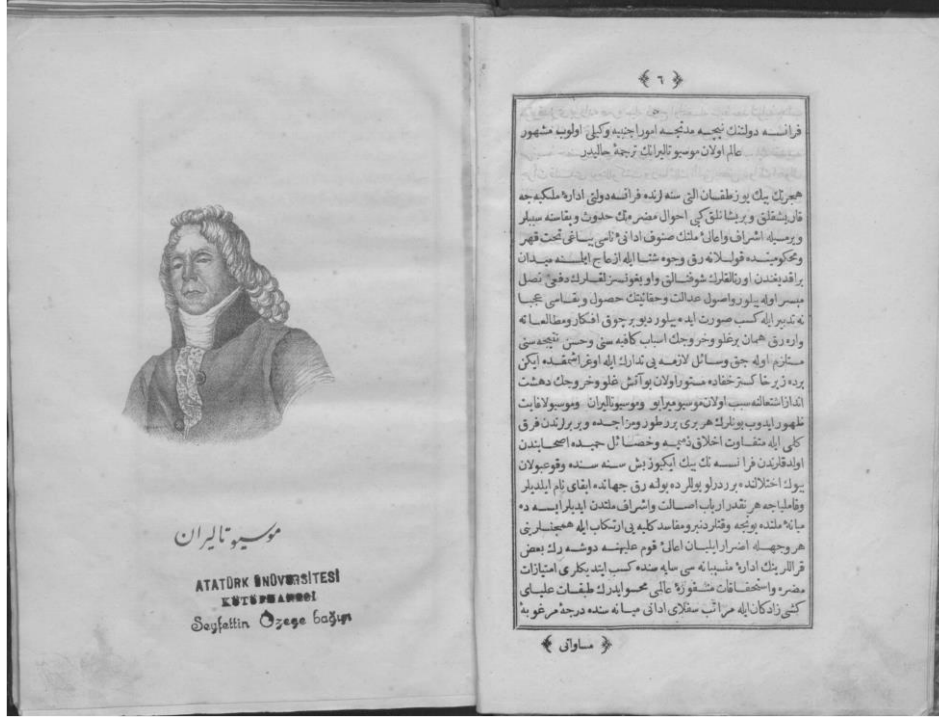 موسیو تالیران
ATATÜRK ÜNÜVERSİTESİ
KÜTÜPHANESİ
Seyfettin Özege bağışı
٦
فرانسه دولتنك نیچه مدتجه امور اجنبیه وکیلی اولوب مشهور
عالم اولان موسیو تالیرانك ترجمهٔ حالیدر
هجرتك بیك یوز طقسان التی سنه لرنده فرانسه دولتی ادارهٔ ملکیه جه
قاریشقلق و پریشانلق کبی احوال مضره نك حدوث و بقاسنه سببلر
ویرمسیله اشراف واعالئ ملتك صنوف ادانئ ناسی بیاغی تحت قهر
ومحکومیتنده قوللانه رق وجوه شتا ایله ازعاج ایلمنه میدان
براقدیغندن اورتالقلرك شو فنالق واویغونسزلقلرك دفعی نصل
میسر اوله بیلور واصول عدالت وحقانیتك حصول وبقاسی عجبا
نه تدبیر ایله کسب صورت ایده بیلور دیو برچوق افکار ومطالعاته
واره رق همان برغلو وخروجك اسباب کافیه سنی وحسن نتیجه سنی
مستلزم اوله جق وسائل لازمه یی تدارك ایله اوغراشمقده ایکن
برده زیر خاکستر خفاده مستور اولان بو آتش غلو وخروجك دهشت
انداز اشتعالنه سبب اولان موسیو میرابو وموسیو تالیران وموسیو لافایت
ظهور ایدوب بونلرك هر بری بر طور ومزاجده و بر برلرندن فرق
کلی ایله متفاوت اخلاق ذمیمه وخصائل حمیده اصحابندن
اولدقلرندن فرانسه نك بیك ایکیوز بش سنه سنده وقوعبولان
بیوك اختلالنده بر درلو یوللر ده بوله رق جهانده ابقای نام ایلدیلر
وفاملیاجه هر نقدر ارباب اصالت واشراف ملتدن ایدیلر ایسه ده
میانهٔ ملتده بونجه وقتلردنبرو مفاسد کلیه یی ارتکاب ایله همجنسلرینی
هر وجهله اضرار ایلیان اعالئ قوم علیهنه دوشه رك بعض
قراللرینك ادارهٔ متسیبانه سی سایه سنده کسب ایتدیکلری امتیازات
مضره واستحقاقات عالمی محو ایدرك طبقات علیای
کشی زادکان ایله مراتب سفلای ادانی میانه سنده درجهٔ مرغوبهٔ
مساواتی